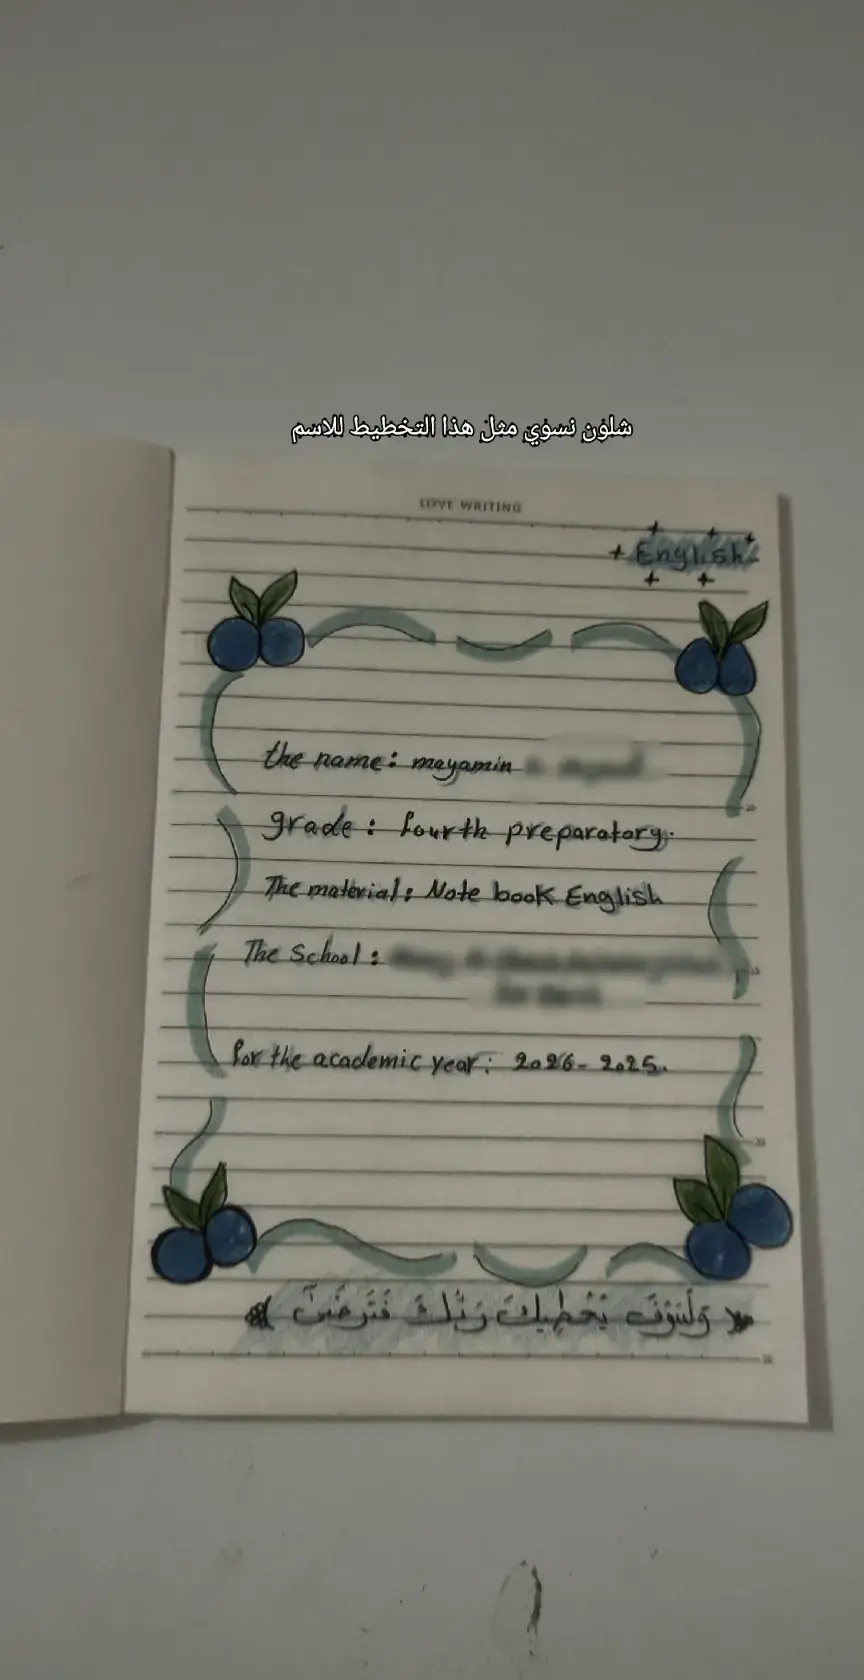 شلون نسوي مثل هذا التخطيط للاسم
LOVE WRITING
English
the name: mayamin
grade: fourth preparatory.
The material: Note book English
The School:
for the academic year: 2026-2025.
وَلَسَوْفَ يُعْطِيكَ رَبُّكَ فَتَرْضَىٰ